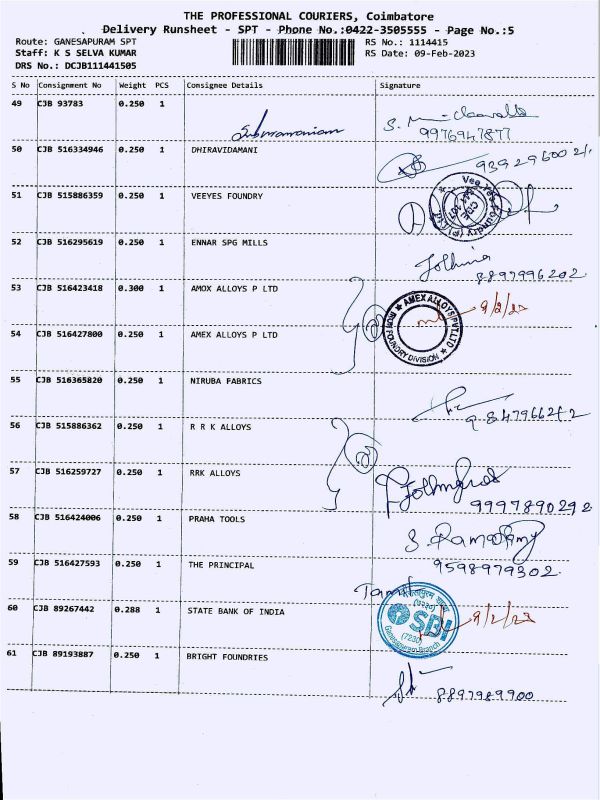 THE PROFESSIONAL COURIERS, Coimbatore
Delivery Runsheet - SPT - Phone No.:0422-3505555 - Page No.:5
Route: GANESAPURAM SPT
RS No.: 1114415
Staff: K S SELVA KUMAR
RS Date: 09-Feb-2023
DRS No.: DCJB111441505
S No Consignment No Weight PCS Consignee Details Signature
49 CJB 93783 0.250 1
Subramaniam
9976947877
50 CJB 516334946 0.250 1 DHIRAVIDAMANI
51 CJB 515886359 0.250 1 VEEYES FOUNDRY
52 CJB 516295619 0.250 1 ENNAR SPG MILLS
8897996202
53 CJB 516423418 0.300 1 AMOX ALLOYS P LTD
AMEX ALLOYS PVT LTD
IRON FOUNDRY DIVISION
9/2/23
54 CJB 516427800 0.250 1 AMEX ALLOYS P LTD
55 CJB 516365820 0.250 1 NIRUBA FABRICS
56 CJB 515886362 0.250 1 R R K ALLOYS
57 CJB 516259727 0.250 1 RRK ALLOYS
9997890292
58 CJB 516424006 0.250 1 PRAHA TOOLS
59 CJB 516427593 0.250 1 THE PRINCIPAL
9598979302
60 CJB 89267442 0.288 1 STATE BANK OF INDIA
SBI
(7230)
Ganesapuram Branch
9/2/23
61 CJB 89193887 0.250 1 BRIGHT FOUNDRIES
8897989900